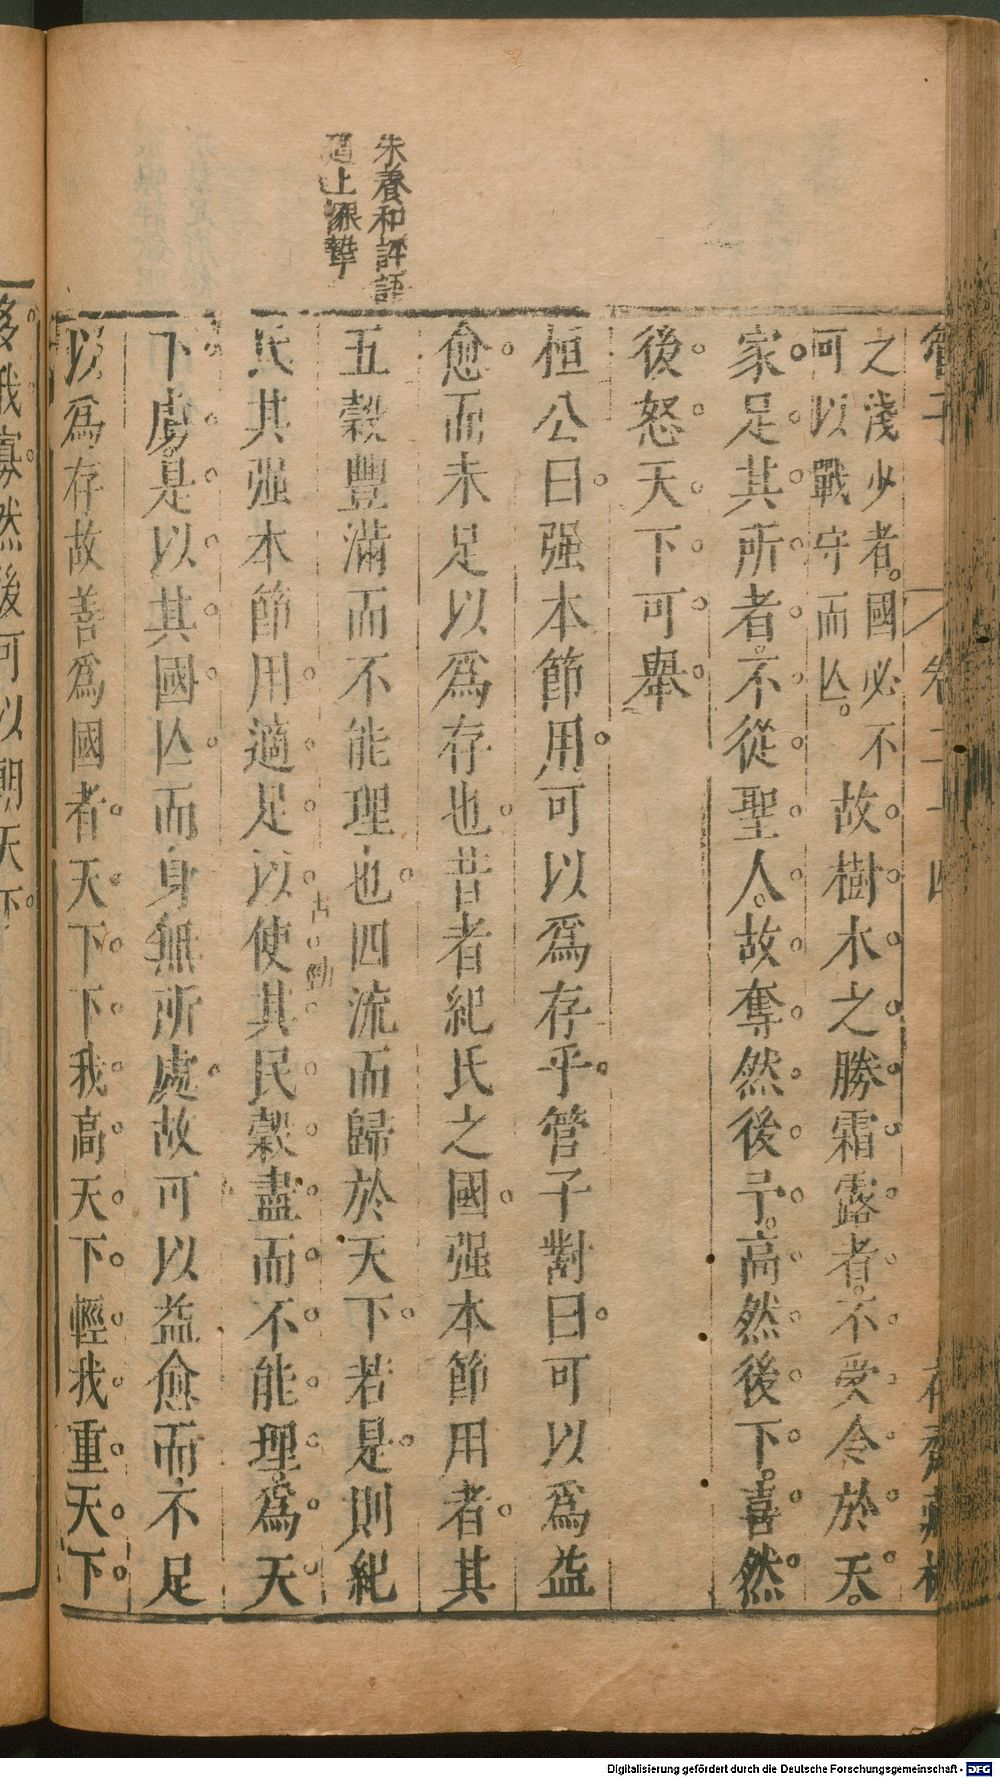 管子
卷二十四
之淺少者國必不
可以戰守而亾
故樹木之勝霜露者不受令於天
家足其所者不從聖人故奪然後予高然後下喜然
後怒天下可舉
桓公曰强本節用可以爲存乎管子對曰可以爲益
愈而未足以爲存也昔者紀氏之國强本節用者其
五穀豐滿而不能理也四流而歸於天下若是則紀
氏其强本節用適足以使其民穀盡而不能理爲天
下虜是以其國亾而身無所處故可以益愈而不足
以爲存故善爲國者天下下我高天下輕我重天下
朱養和評語
古勁
多我寡然後可以朝天下
Digitalisierung gefördert durch die Deutsche Forschungsgemeinschaft - DFG